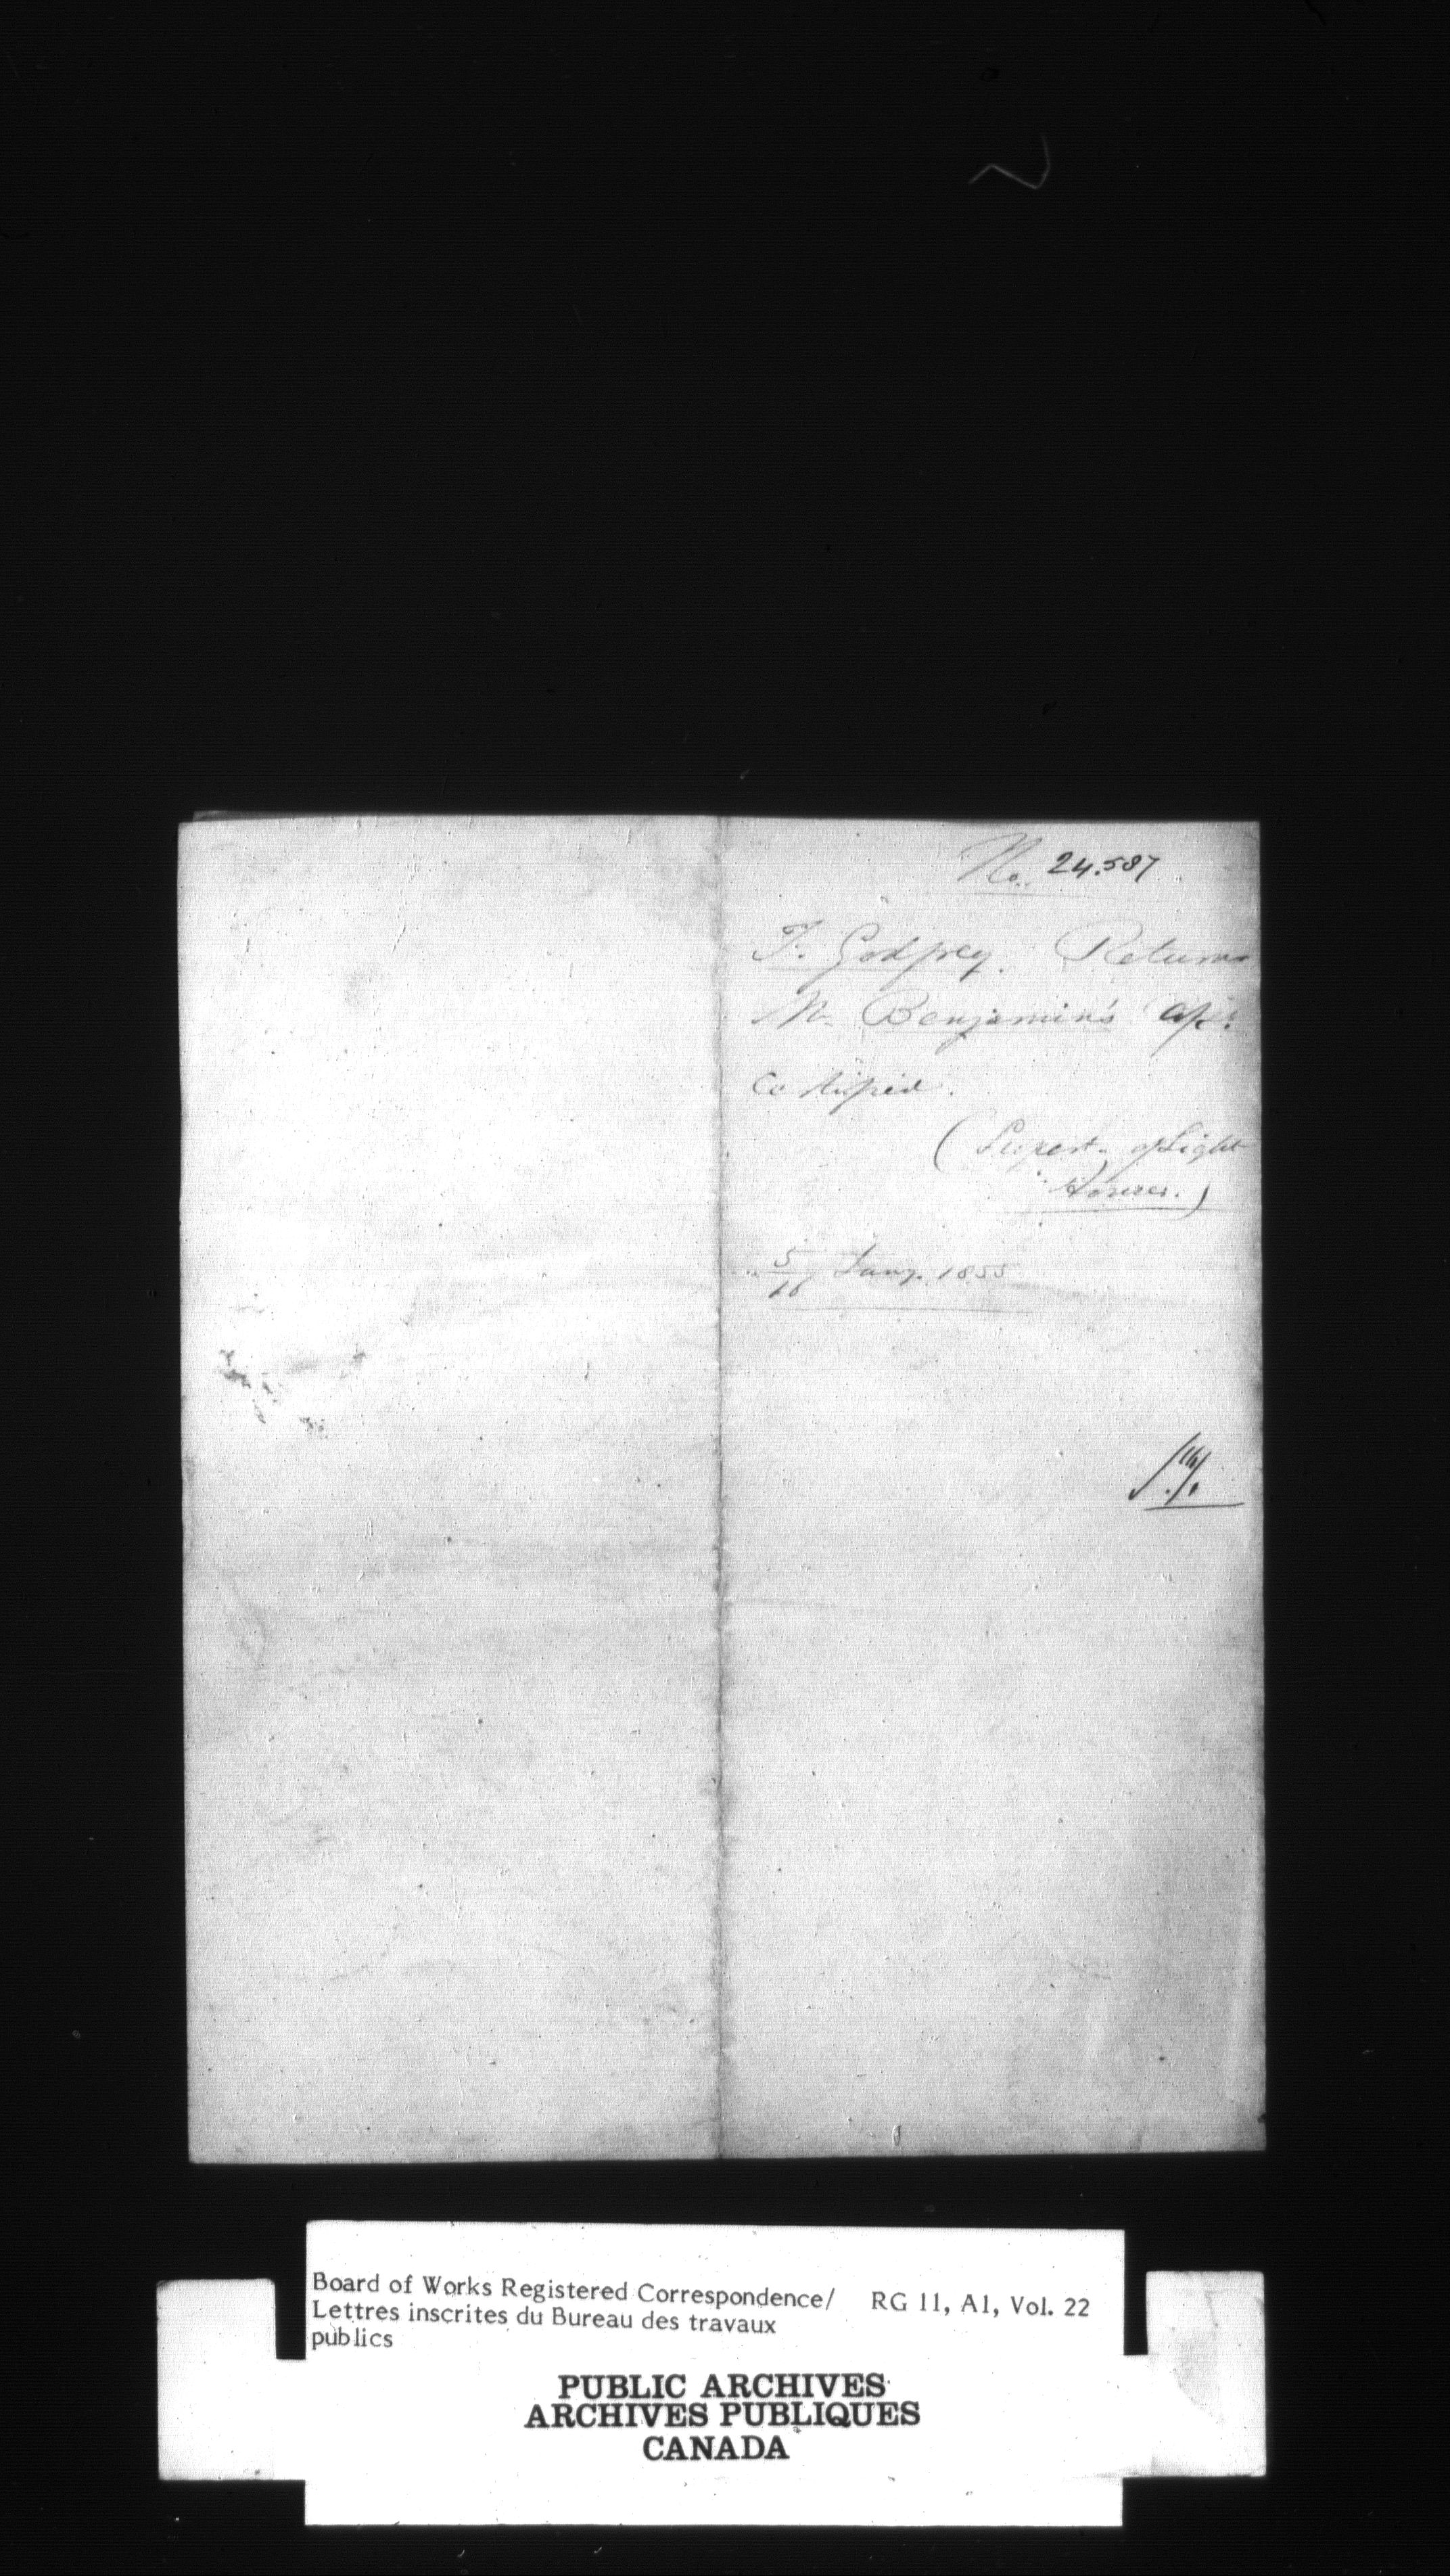 No. 24.587
T. Godfrey. Returns
Mr. Benjamin's
Certified.
(Supert. of Light
Houses.)
5/16 Jany. 1855
Board of Works Registered Correspondence/ RG 11, A1, Vol. 22
Lettres inscrites du Bureau des travaux
publics
PUBLIC ARCHIVES
ARCHIVES PUBLIQUES
CANADA